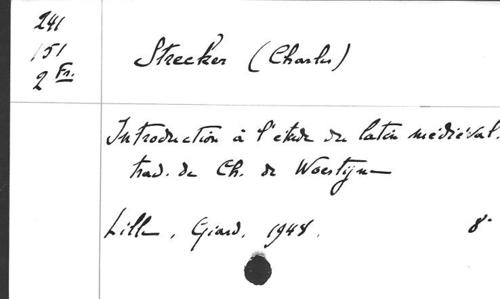 241
151
2 Fr.
Strecker (Charles)
Introduction à l'étude du latin médiéval.
trad. de Ch. de Woestijne
Lille, Giard, 1948. 8°